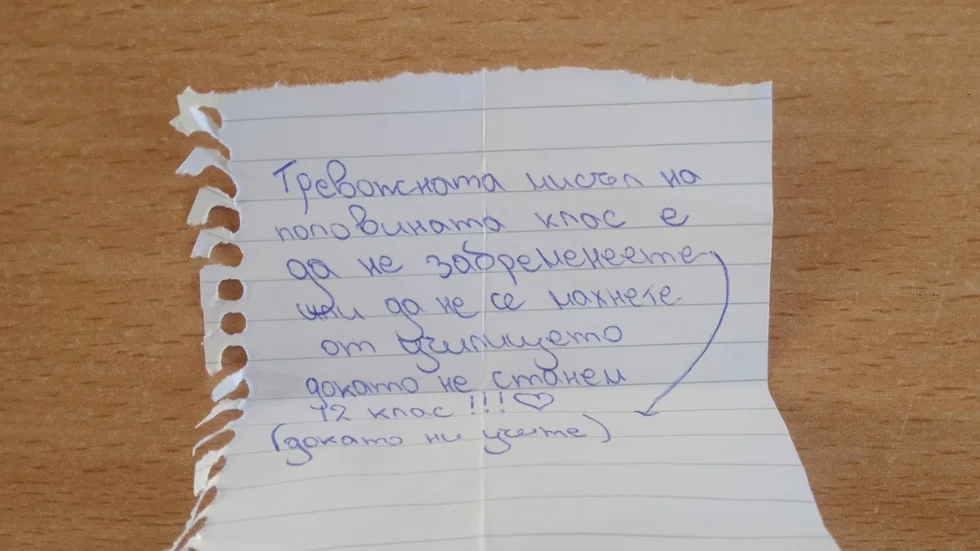 Тревожната мисъл на
половината клас е
да не забременеете
или да не се махнете
от училището
докато не станем
12 клас !!! ♡
(докато ни учите)